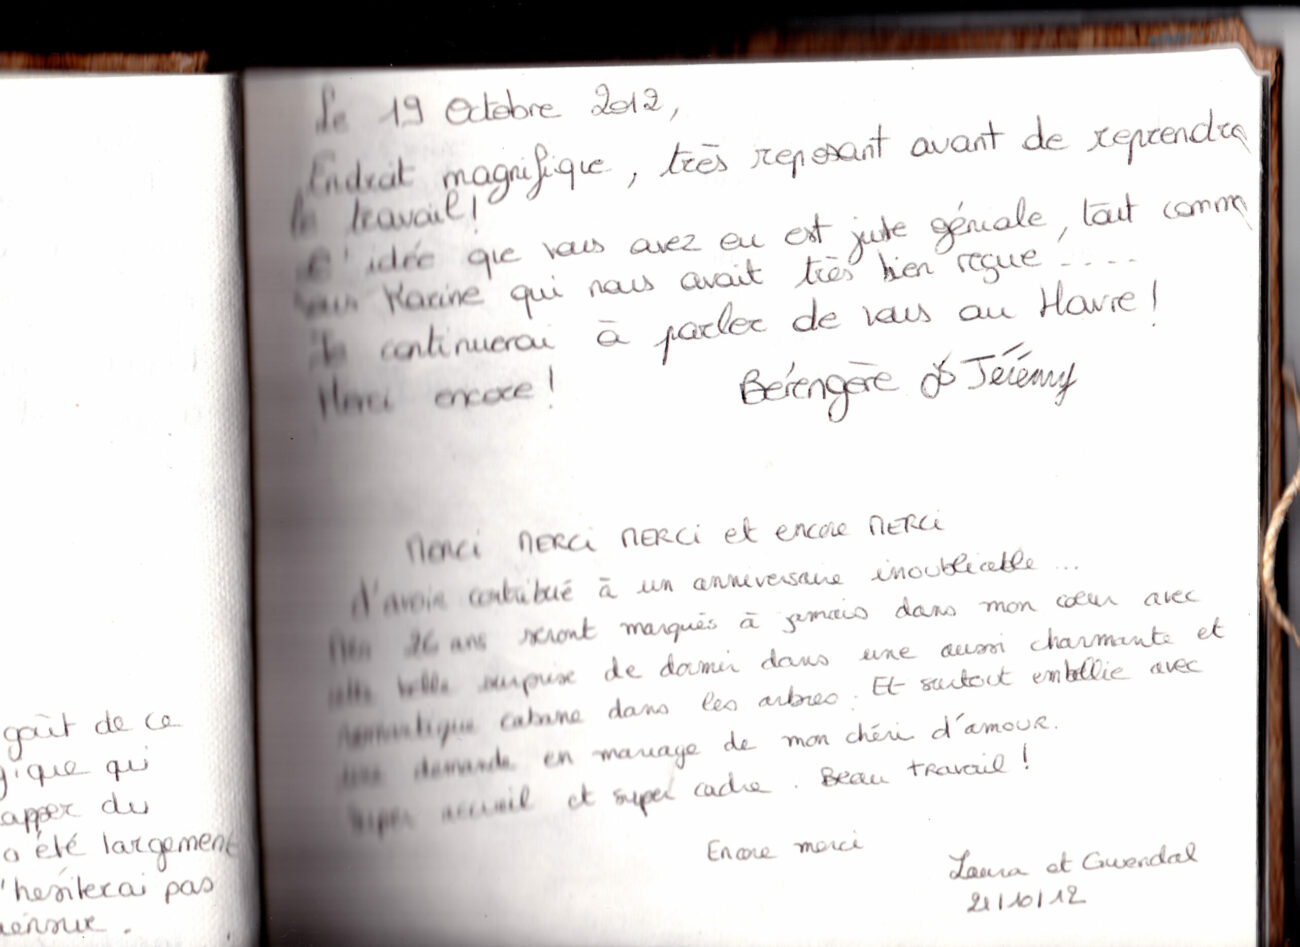 goût de ce
gique qui
apper du
a été largement
n'hésiterai pas
Le 19 Octobre 2012,
Endroit magnifique, très reposant avant de reprendre
le travail!
L'idée que vous avez eu est juste géniale, tout comme
vous Karine qui nous avait très bien reçue ....
Je continuerai à parler de vous au Havre!
Merci encore!
Bérengère & Jérémy
Merci MERCi MERCi et encore MERCi
d'avoir contribué à un anniversaire inoubliable...
Mes 26 ans seront marqués à jamais dans mon cœur avec
cette belle surprise de dormir dans une aussi charmante et
romantique cabane dans les arbres. Et surtout embéllie avec
une demande en mariage de mon chéri d'amour.
Super accueil et super cadre. Beau travail!
Encore merci
Laura et Gwendal
21/10/12